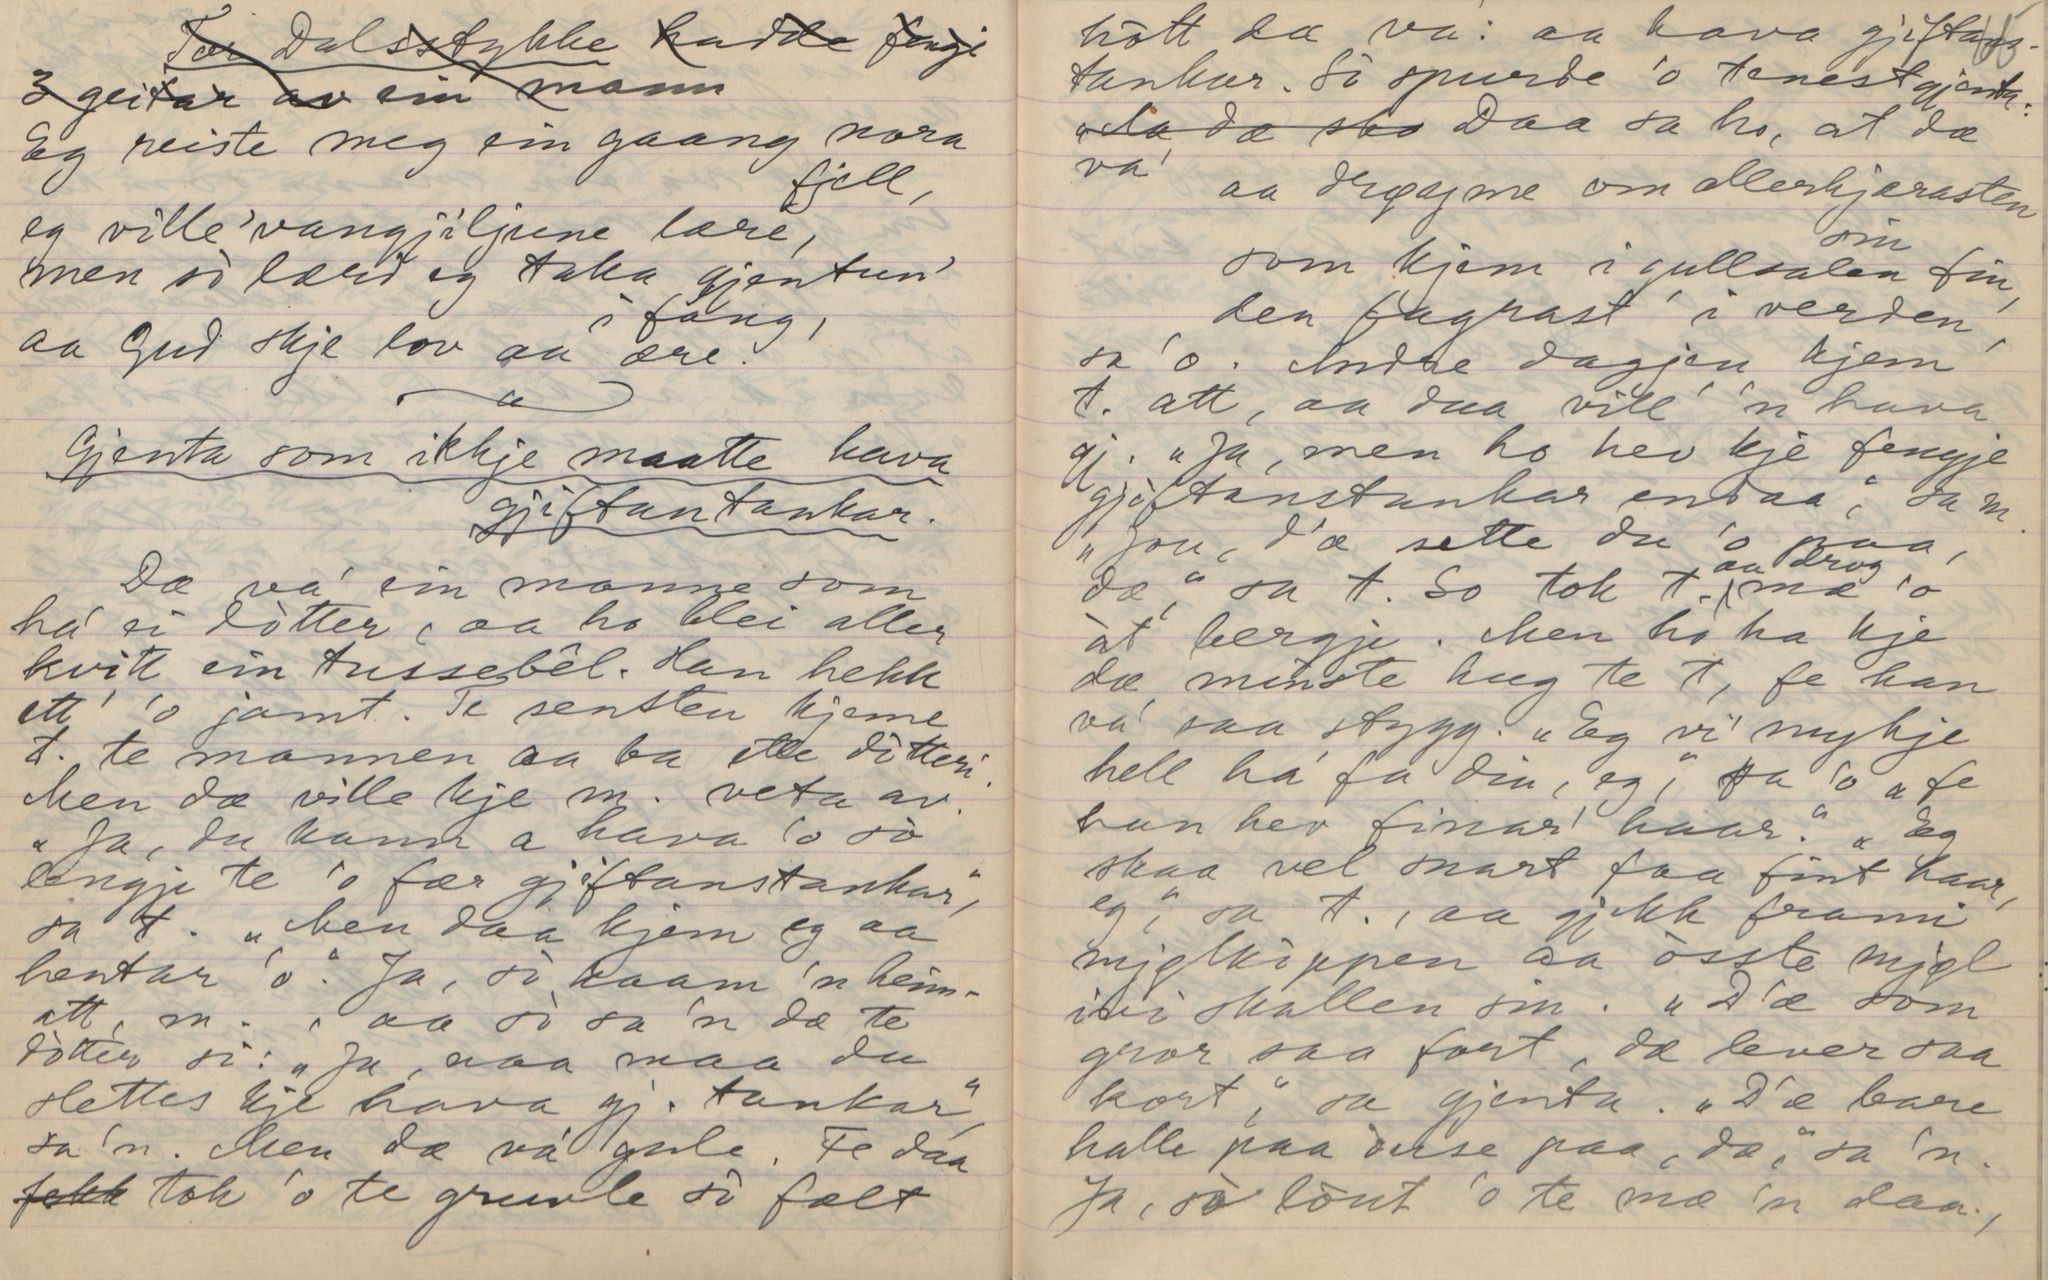 Tor Dalsstykke hadde fengje
3 geitar av ein mann
Eg reiste meg ein gaang nora
fjell,
eg ville 'vangji'ljune lære,
men sò lærd eg taka gjentun'
i fang,
aa Gud skje lov aa ære.
Gjenta som ikkje maatte hava
gjiftantankar.
Dæ va' ein manne som
há ei dòtter, aa ho blei aller
kvitt ein tussebêl. Han hekk
ett' 'o jamt. Te sensten kjeme
t. te mannen aa ba ette dòtteri.
Men dæ ville kje m. veta av.
"Ja, du kann a hava 'o sò
lengje te 'o fær gjiftanstankar",
sa t. "Men daa kjem eg aa
hentar 'o". Ja, sò kaam 'n heim-
att, m., aa sò sa 'n dæ te
dòtter si: "Ja, naa maa du
slettes kje hava gj. tankar",
sa 'n. Men dæ va gale. Fe daa
fekk tok 'o te gruvle sò fælt
hòtt dæ va: aa hava gjiftans-
tankar. Sò spurde 'o tenestgjenta:
"Aa dæ sko Daa sa ho, at dæ
va'
aa drøyme om allerkjærasten
sin
som kjem i gullsalen fin,
den fagrast' i verden',
sa 'o. Andre dagjen kjem'
t. att, aa daa vill' 'n hava
gj. "Ja, men ho hev kje fengje
gjiftanstankar endaa", sa m.
"Jou, d'æ sette du 'o paa,
dæ," sa t. So tok t. mæ 'o
aa drog
àt bergje. Men ho ha kje
dæ minste hug te t, fe han
va' saa stygg. "Eg vi' mykje
hell há fa din, eg", sa 'o "fe
han hev finar' haar." "Eg
skaa vel snart faa fint haar,
eg", sa t., aa gjekk frami
mjølkippen aa òsste mjøl
ivi skallen sin. "D'æ som
gror saa fort, dæ lever saa
kort", sa gjenta. "D'æ bare
halle paa òuse paa, da," sa 'n.
Ja, sò lònt 'o te mæ 'n daa,